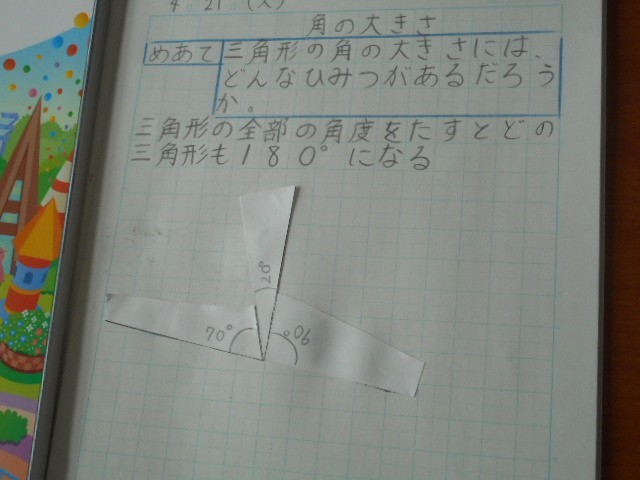 4 21 (火)
角の大きさ
めあて 三角形の角の大きさには、
どんなひみつがあるだろう
か。
三角形の全部の角度をたすとどの
三角形も180°になる
20°
70°
90°